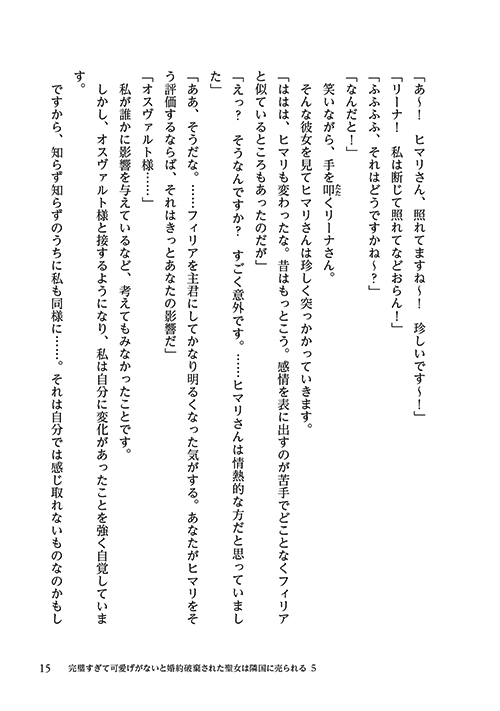 「あ～！　ヒマリさん、照れてますね～！　珍しいです～！」
「リーナ！　私は断じて照れてなどおらん！」
「ふふふふ、それはどうですかね～？」
「なんだと！」
　笑いながら、手を叩くリーナさん。
たた
　そんな彼女を見てヒマリさんは珍しく突っかかっていきます。
「ははは、ヒマリも変わったな。昔はもっとこう。感情を表に出すのが苦手でどことなくフィリア
と似ているところもあったのだが」
「えっ？　そうなんですか？　すごく意外です。……ヒマリさんは情熱的な方だと思っていまし
た」
「ああ、そうだな。……フィリアを主君にしてかなり明るくなった気がする。あなたがヒマリをそ
う評価するならば、それはきっとあなたの影響だ」
「オスヴァルト様……」
　私が誰かに影響を与えているなど、考えてもみなかったことです。
　しかし、オスヴァルト様と接するようになり、私は自分に変化があったことを強く自覚していま
す。
　ですから、知らず知らずのうちに私も同様に……。それは自分では感じ取れないものなのかもし
15　完璧すぎて可愛げがないと婚約破棄された聖女は隣国に売られる 5